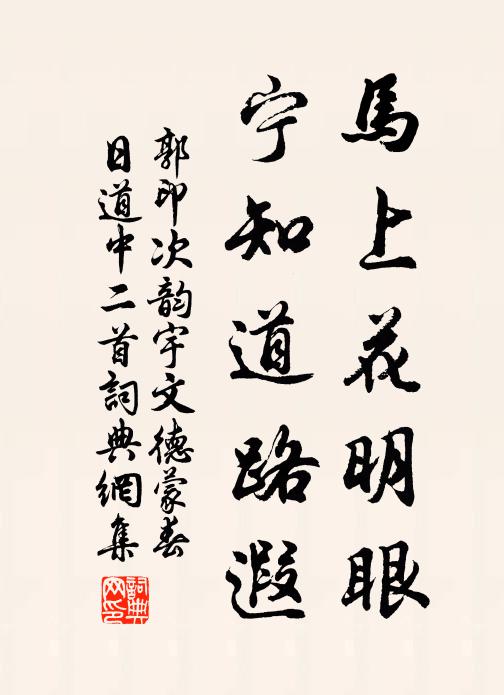 馬上花明眼
宁知道路遐
郭印次韵宇文德蒙春
日道中二首詞典網集
詞典網印